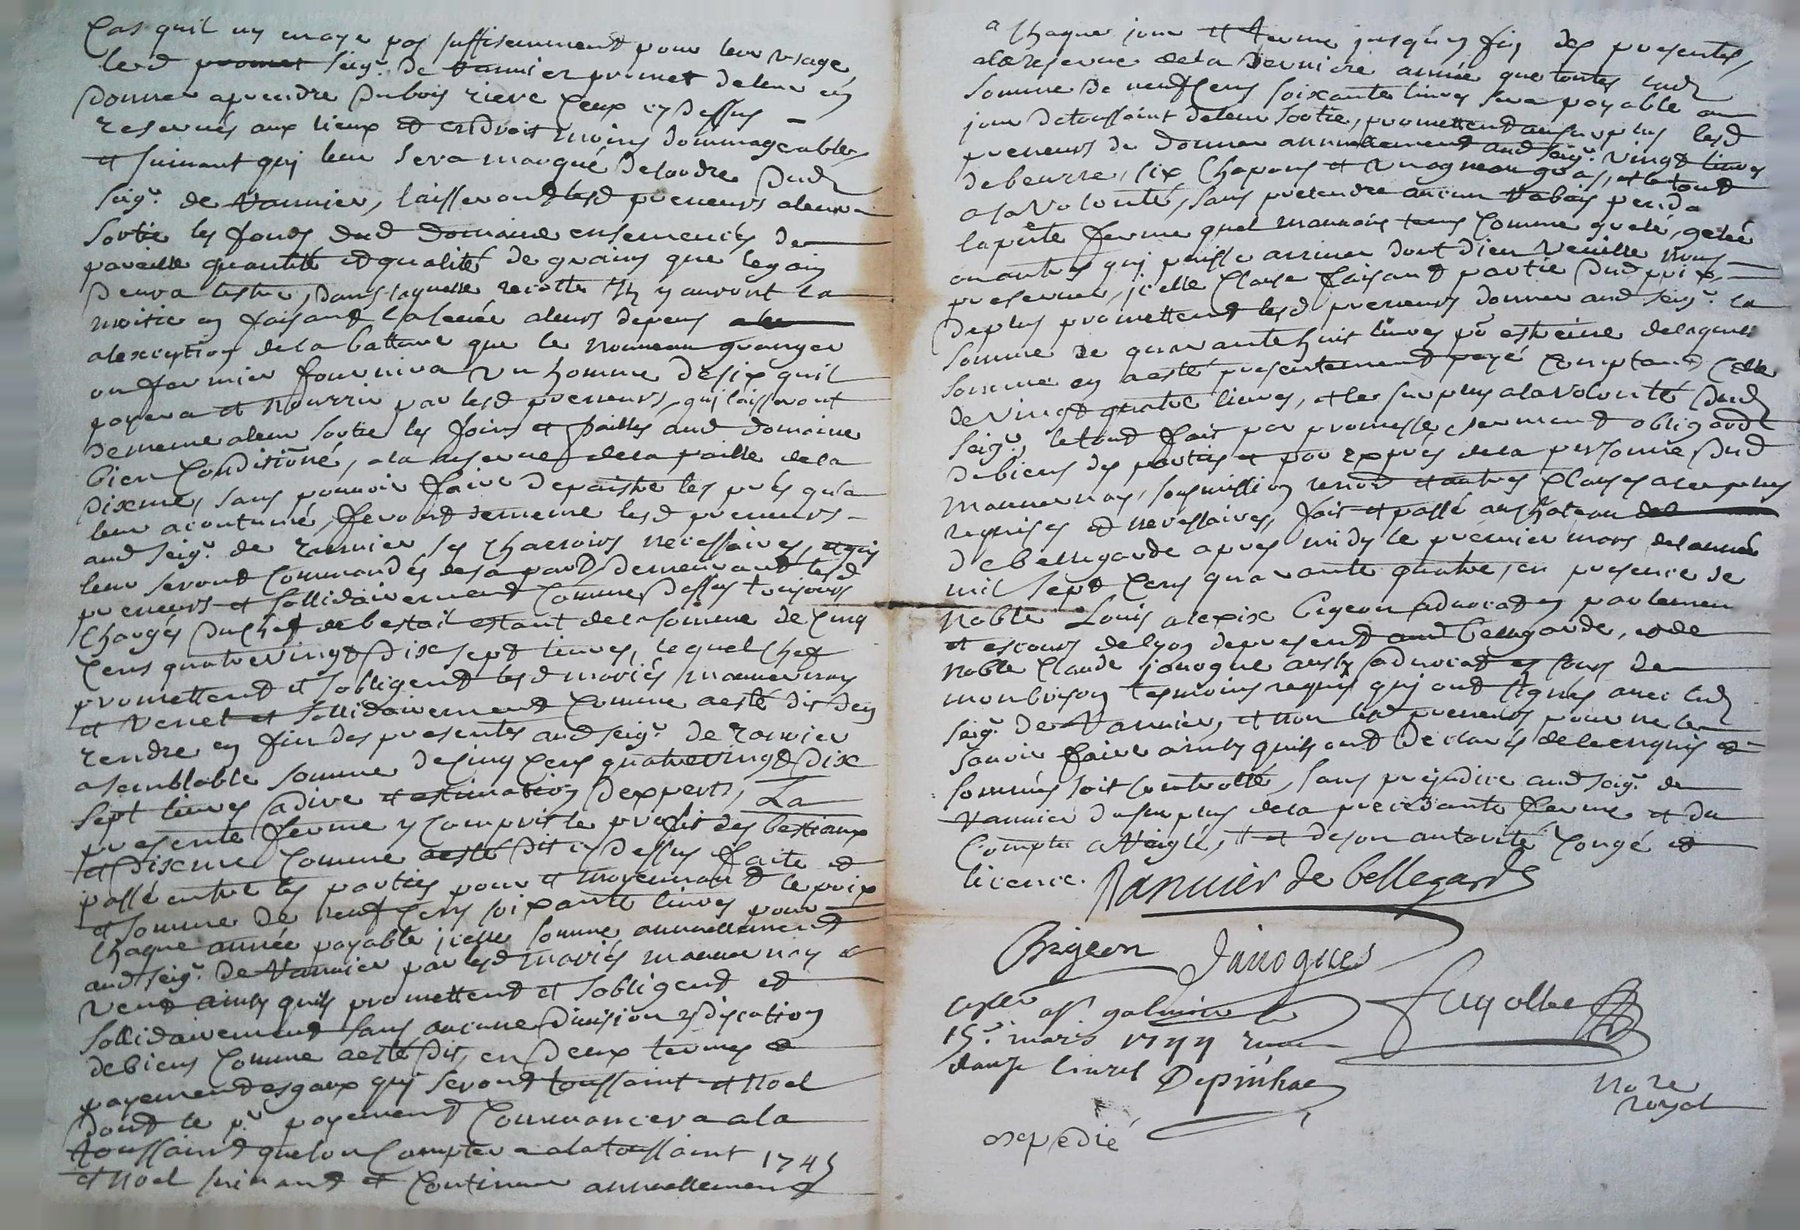 Cas quil ny en aye pas suffisemment pour leur usage,
led promet seigr. de Rannier promet de leur en
donner a prendre du bois rieve ceux cy dessus
reservés aux lieux et endroit moins dommageables
et suivant quj leur sera marque de lordre dud
seigr. de Rannier, laisseront lesd preneurs a leur
sortie les fonds dud domaine ensemencés de
pareille quantité et qualité de grains que le gain
devra estre, dans laquelle recolte Ils y auront la
moitie en faisant la levée a leurs depens
a lexception de la batture que le nouveau granger
ou fermier fournira un homme de six quil
payera et nourrir par lesd preneurs, quj laisseront
de meme a leur sortie les foins et pailles aud domaine
bien conditioné, a la reserve de la paille de la
dixme, sans pouvoir faire depaistre les prés qua
leur acoutumé, feront de meme lesd preneurs
aud seigr. de Rannier les charrois necessaires, et quj
leur seront commandés de sa part, demeurant lesd
preneurs et sollidairement comme dessus toujours
chargés du chef de bestail estant de la somme de cinq
cens quatrevingt dix sept livres, lequel chef
promettent et sobligent lesd mariés
et Venet et sollidairement comme a esté dit den
rendre en fin des presentes aud seigr. de Rannier
a semblable somme de cinq cens quatrevingt dix
sept livres a dire et estimation dexperts, La
presente ferme y compris le profit des bestiaux
et dixme comme a esté dit cy dessus faite et
passé entre les parties pour et moyennant le prix
et somme de neuf cens soixante livres pour
chaque année payable jcelle somme annuellement
aud seigr. de Rannier par lesd mariés
ainsy quils promettent et sobligent et
sollidairement sans aucune division ny discution
de biens comme a esté dit, en deux termes et
payement esgaux quj seront toussaint et Noel
dont le pr. payement commancera a la
toussaint que lon comptera a la toussaint 1745
et Noel suivant et continuer annuellement
a chaque jour et terme jusqu'en fin des presentes,
a la reserve de la derniere année que toutes lad
somme de neuf cens soixante livres sera payable au
jour de toussaint de leur sortie, promettent en surplus lesd
preneurs de donner annuellement aud seigr. vingt livres
de beurre, six chapons et un agneau gras, et le tout
a sa volonté, sans pretendre aucun rabais pendt
la pnte ferme quel mauvais tems comme grele, gelée
ou autres quj puisse arriver dont dieu veuille nous
preserver, jcelle clause faisant partie dud prix
de plus promettent lesd preneurs donner aud seigr. la
somme de quarante huit livres pr. estreine de laquelle
somme en a esté presentement payé comptant celle
de vingt quatre livres, et le surplus a la volonté dud
seigr. le tout fait par promesse, serment obligaon
de biens des parties et par expres de la personne dud
soumission renon et autres clauses a ce plus
requises et necessaires, fait et passé au chateau
de bellegarde apres midy le premier mars de lannée
mil sept cens quarante quatre, en presence de
noble Louis alexix Brigeon advocat en parlemen
et es cours de lyon de present aud bellegarde, et de
noble Claude Janogue aussy advocat es cours de
monbrison tesmoins requis quj ont signés avec led
seigr. de Rannier, et non lesd preneurs pour ne le
savoir faire ainsy quils ont declarés de ce enquis et
sommés soit controllé, sans prejudice aud seigr. de
Rannier du surplus de la precedante ferme et du
compte a regle, et de son autorité congé et
licence. Rannier de bellegarde
Brigeon Janogues
a st galmier
15e. mars 1744
douze livres Depinhac
Nore
royal
expedié